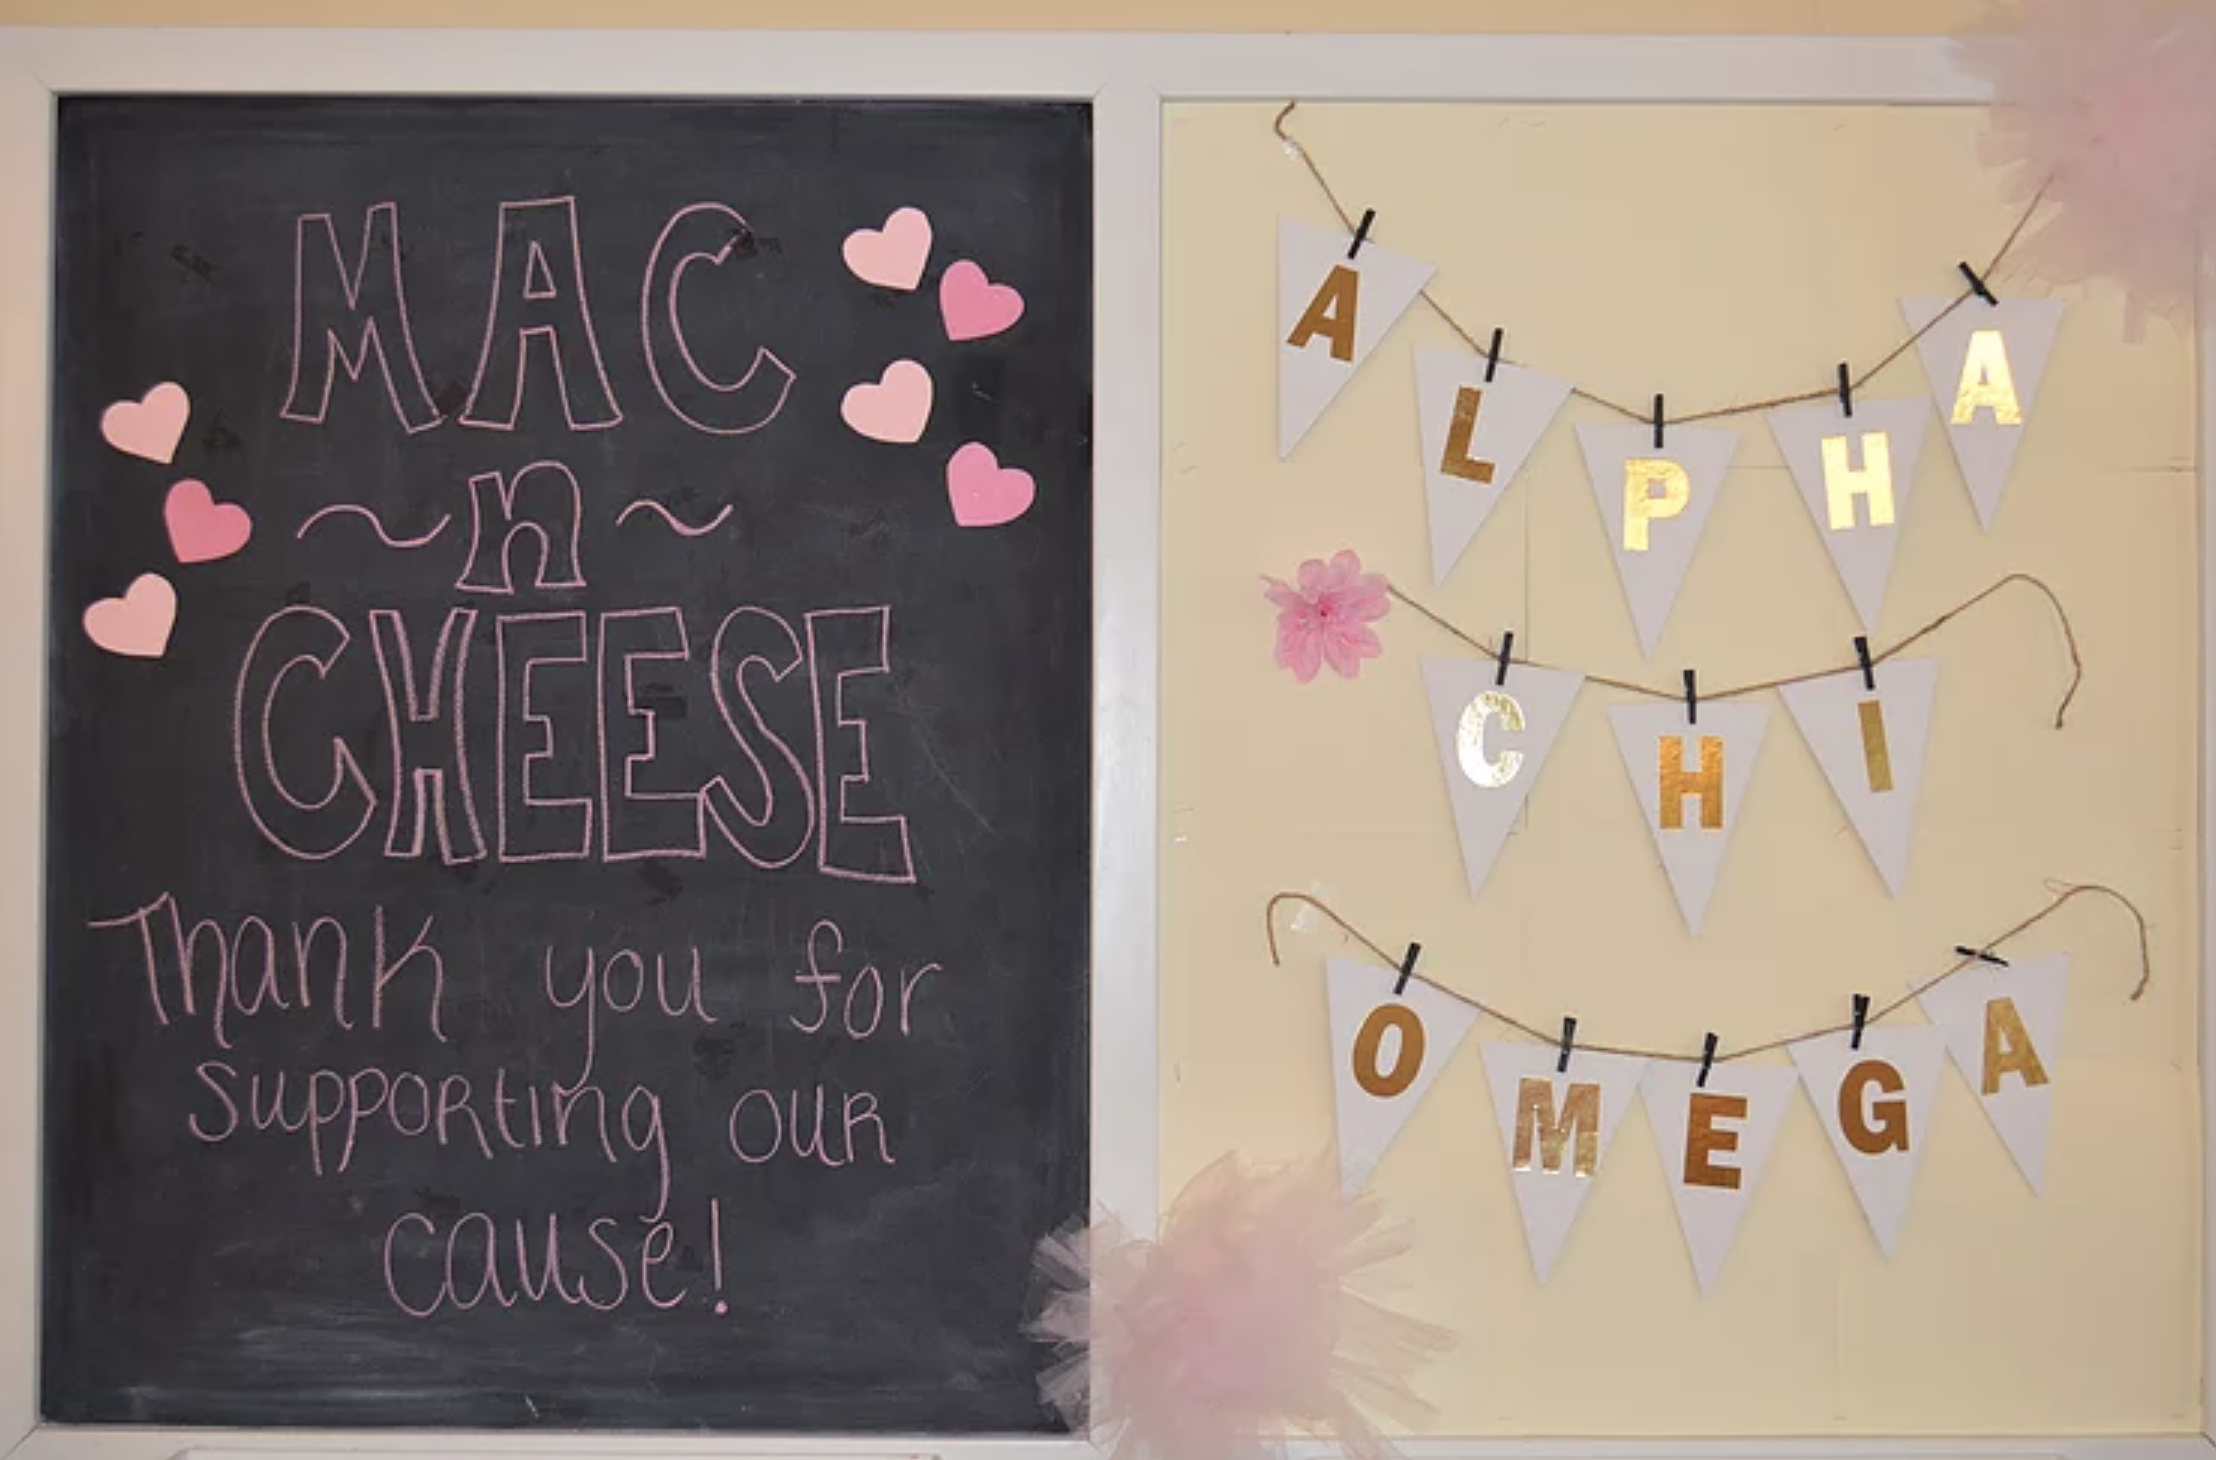 MAC
~n~
CHEESE
Thank you for
supporting our
cause!
ALPHA
CHI
OMEGA